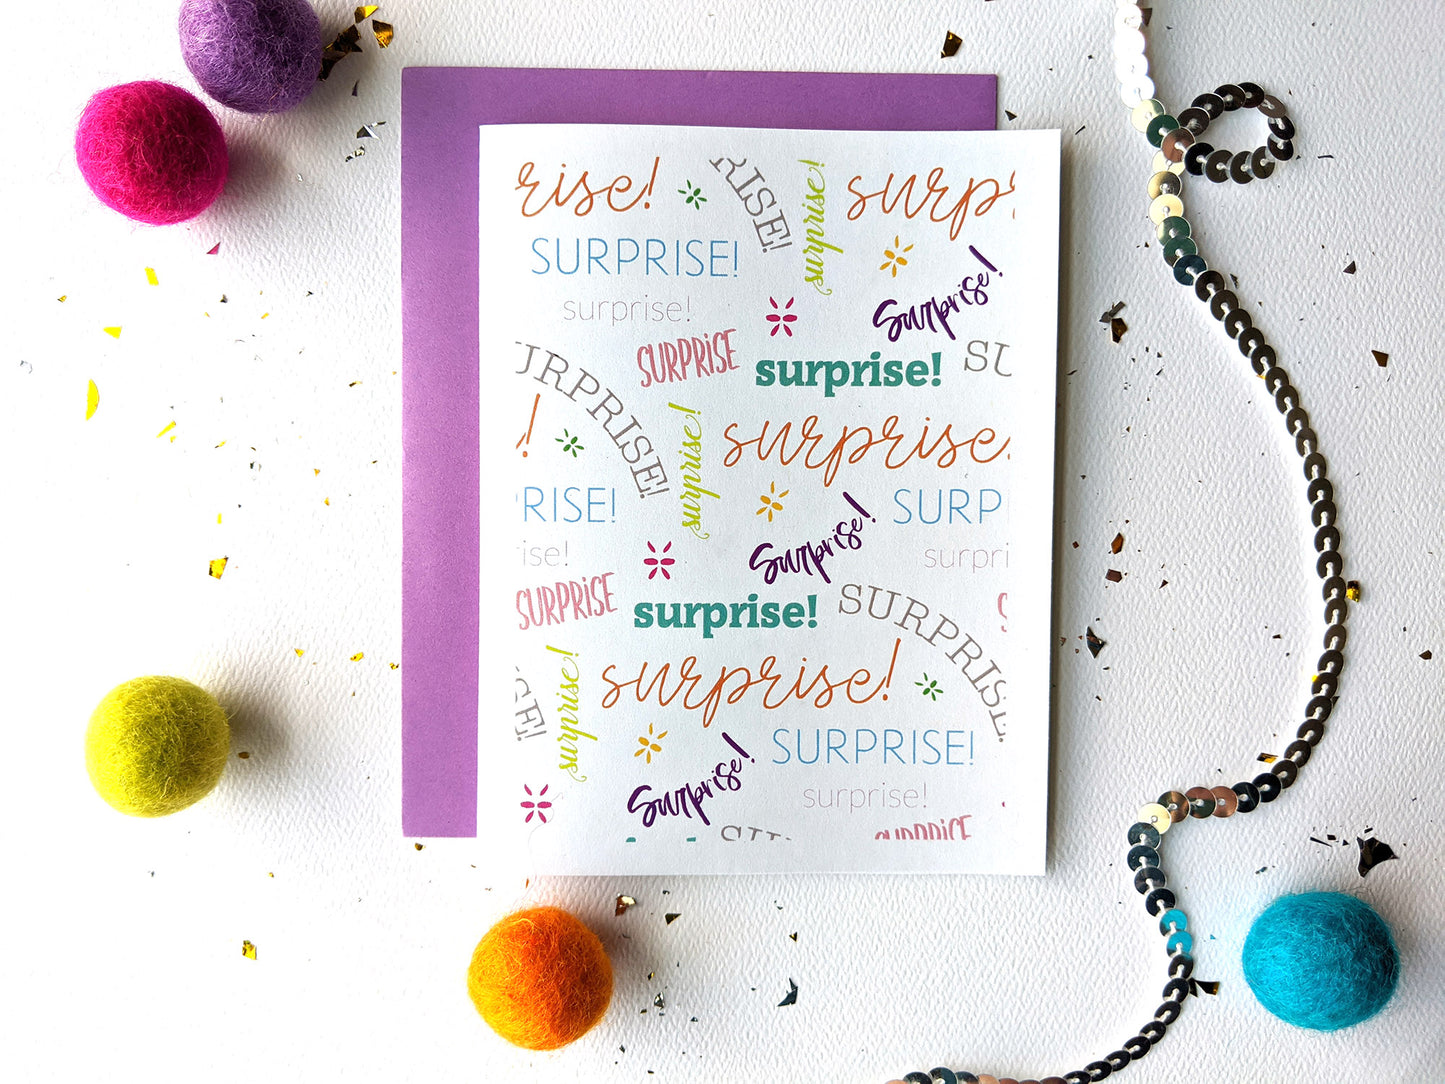 rise!
RISE!
surprise!
surp
SURPRISE!
surprise!
Surprise!
SURPRISE
surprise!
SU
URPRISE!
!
surprise!
surprise
RISE!
ise!
Surprise!
SURP
surpri
SURPRISE
surprise!
SURPRISE
surprise!
surprise!
SE!
SURPRISE!
Surprise!
surprise!
SU
SURPRISE